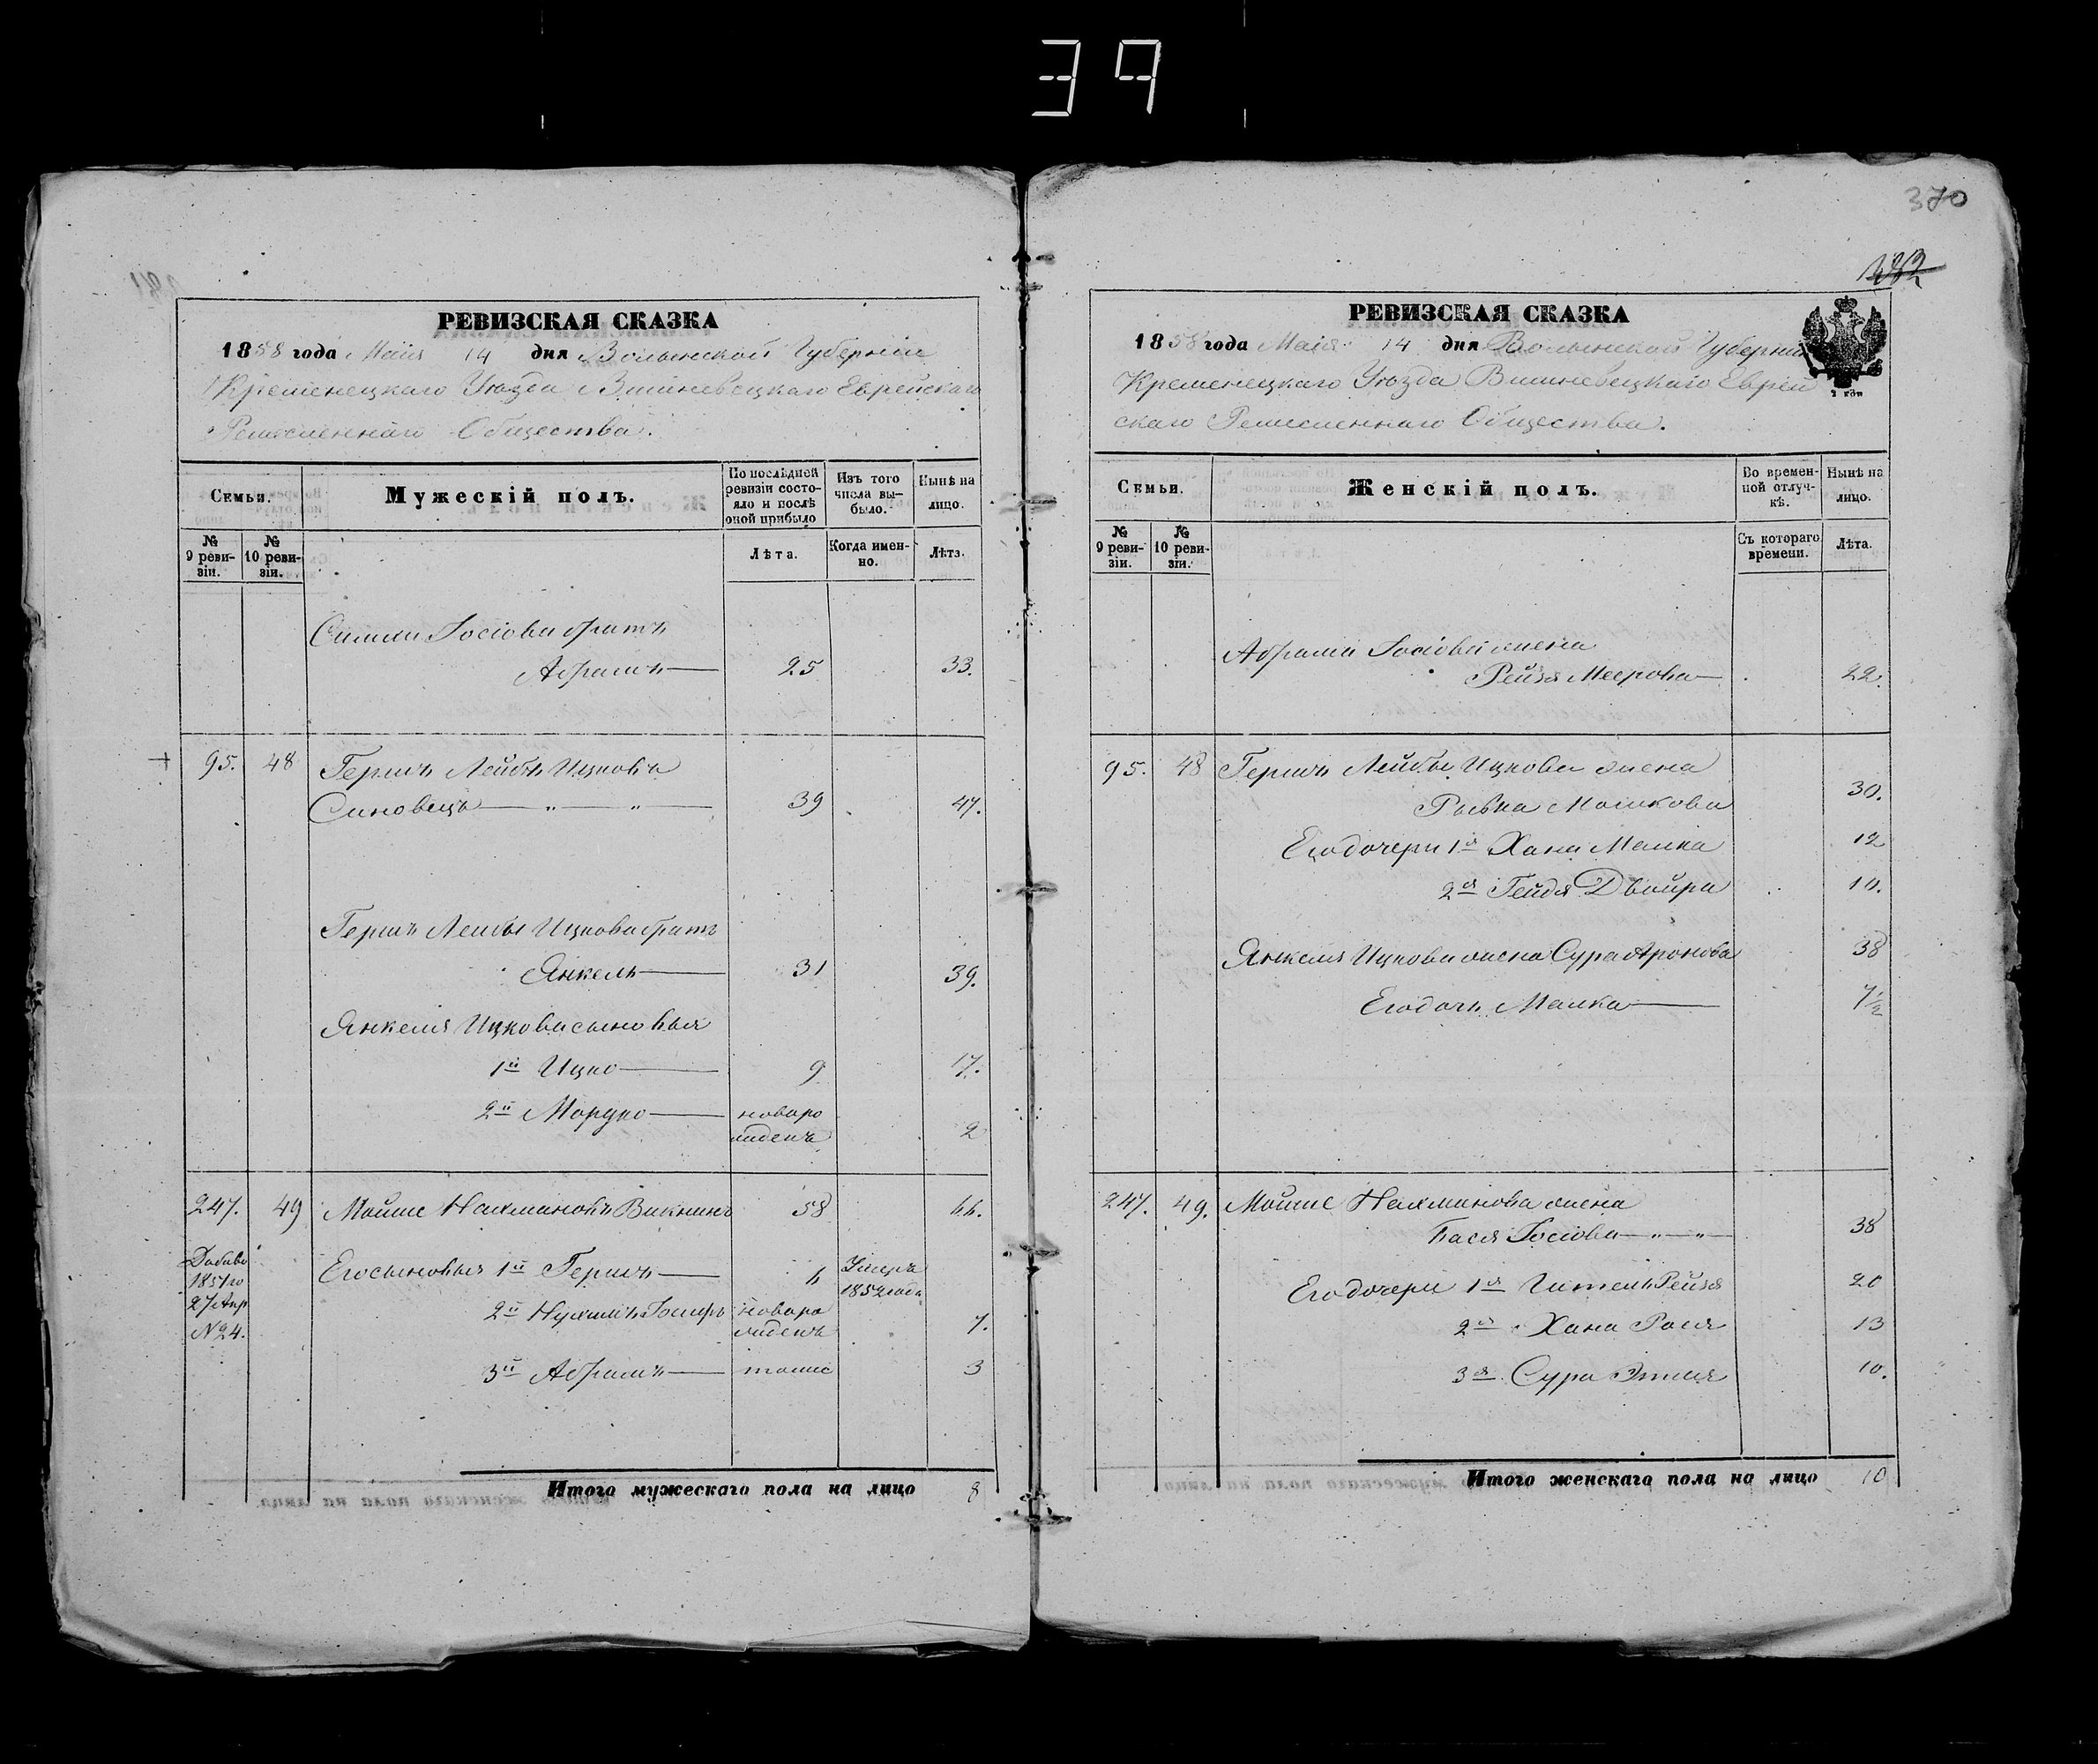 39
370
РЕВИЗСКАЯ СКАЗКА
1858 года Маія 14 дня Волынской Губерніи
Кременецкаго Уѣзда Вишневецкаго Еврейскаго
Ремесленнаго Общества.
Семьи.
Мужескій полъ.
По послѣдней ревизіи состояло и послѣ оной прибыло
Изъ того числа выбыло.
Нынѣ на лицо.
№ 9 ревизіи.
№ 10 ревизіи.
Лѣта.
Когда именно.
Лѣта.
Іосіова братъ
Абрамъ 25 33.
95. 48 Гершъ Лейбъ Ицковъ
Синовецъ — „ — „ — 39 47.
Гершъ Лейбы Ицкова братъ
Янкель 31 39.
Янкеля Ицкова сыновья
1й Ицко 9 17.
2й Мордко новоро
жденъ 2
247. 49 Мойше Нахмановъ 58 66.
Добаво
1851го
27 Апр
№24.
Его сыновья 1й Гершъ 6 Умеръ
1852 года
2й новоро
жденъ 7.
3й Абрамъ тоже 3
Итого мужескаго пола на лицо 8
РЕВИЗСКАЯ СКАЗКА
1858 года Маія 14 дня Волынской Губерніи
Кременецкаго Уѣзда Вишневецкаго Еврей
скаго Ремесленнаго Общества.
Семьи.
Женскій полъ.
Во временной отлучкѣ.
Нынѣ на лицо.
№ 9 ревизіи.
№ 10 ревизіи.
Съ котораго времени.
Лѣта.
Абрама Іосіова жена
Рейзя Меерова 22.
95. 48 Гершъ Лейбы Ицкова жена
Рывка Мошкова 30.
Его дочери 1я Хана Малка 12
2я Гейдя Двойра 10.
Янкеля Ицкова жена Сура Аронова 38
Его дочь Малка 7½
247. 49. Мойше Нахманова жена
Бася Іосіова — „ — „ — 38
Его дочери 1я Гитель Рейзя 20
2я Хана Рося 13
3я Сура Этля 10.
Итого женскаго пола на лицо 10